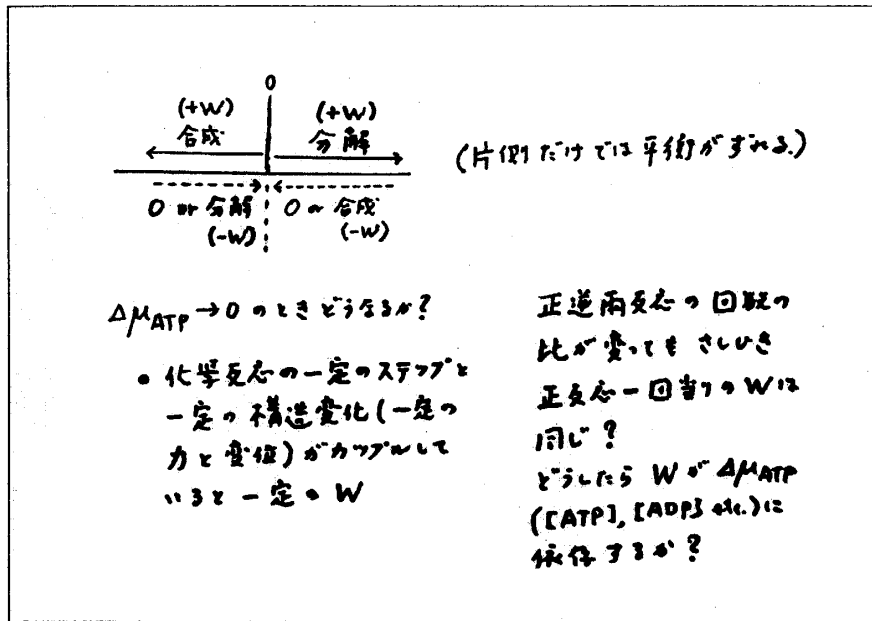 0
(+W) (+W)
合成 分解
(片側だけでは平衡がずれる.)
0 or 分解 0 or 合成
(-W) (-W)
Δμ_ATP → 0 のときどうなるか?
• 化学反応の一定のステップと
一定の構造変化(一定の
力と変位)がカップルして
いると一定のW
正逆両反応の回数の
比が変ってもさしひき
正反応一回当りのWは
同じ?
どうしたら W が Δμ_ATP
([ATP], [ADP] etc.)に
依存するか?